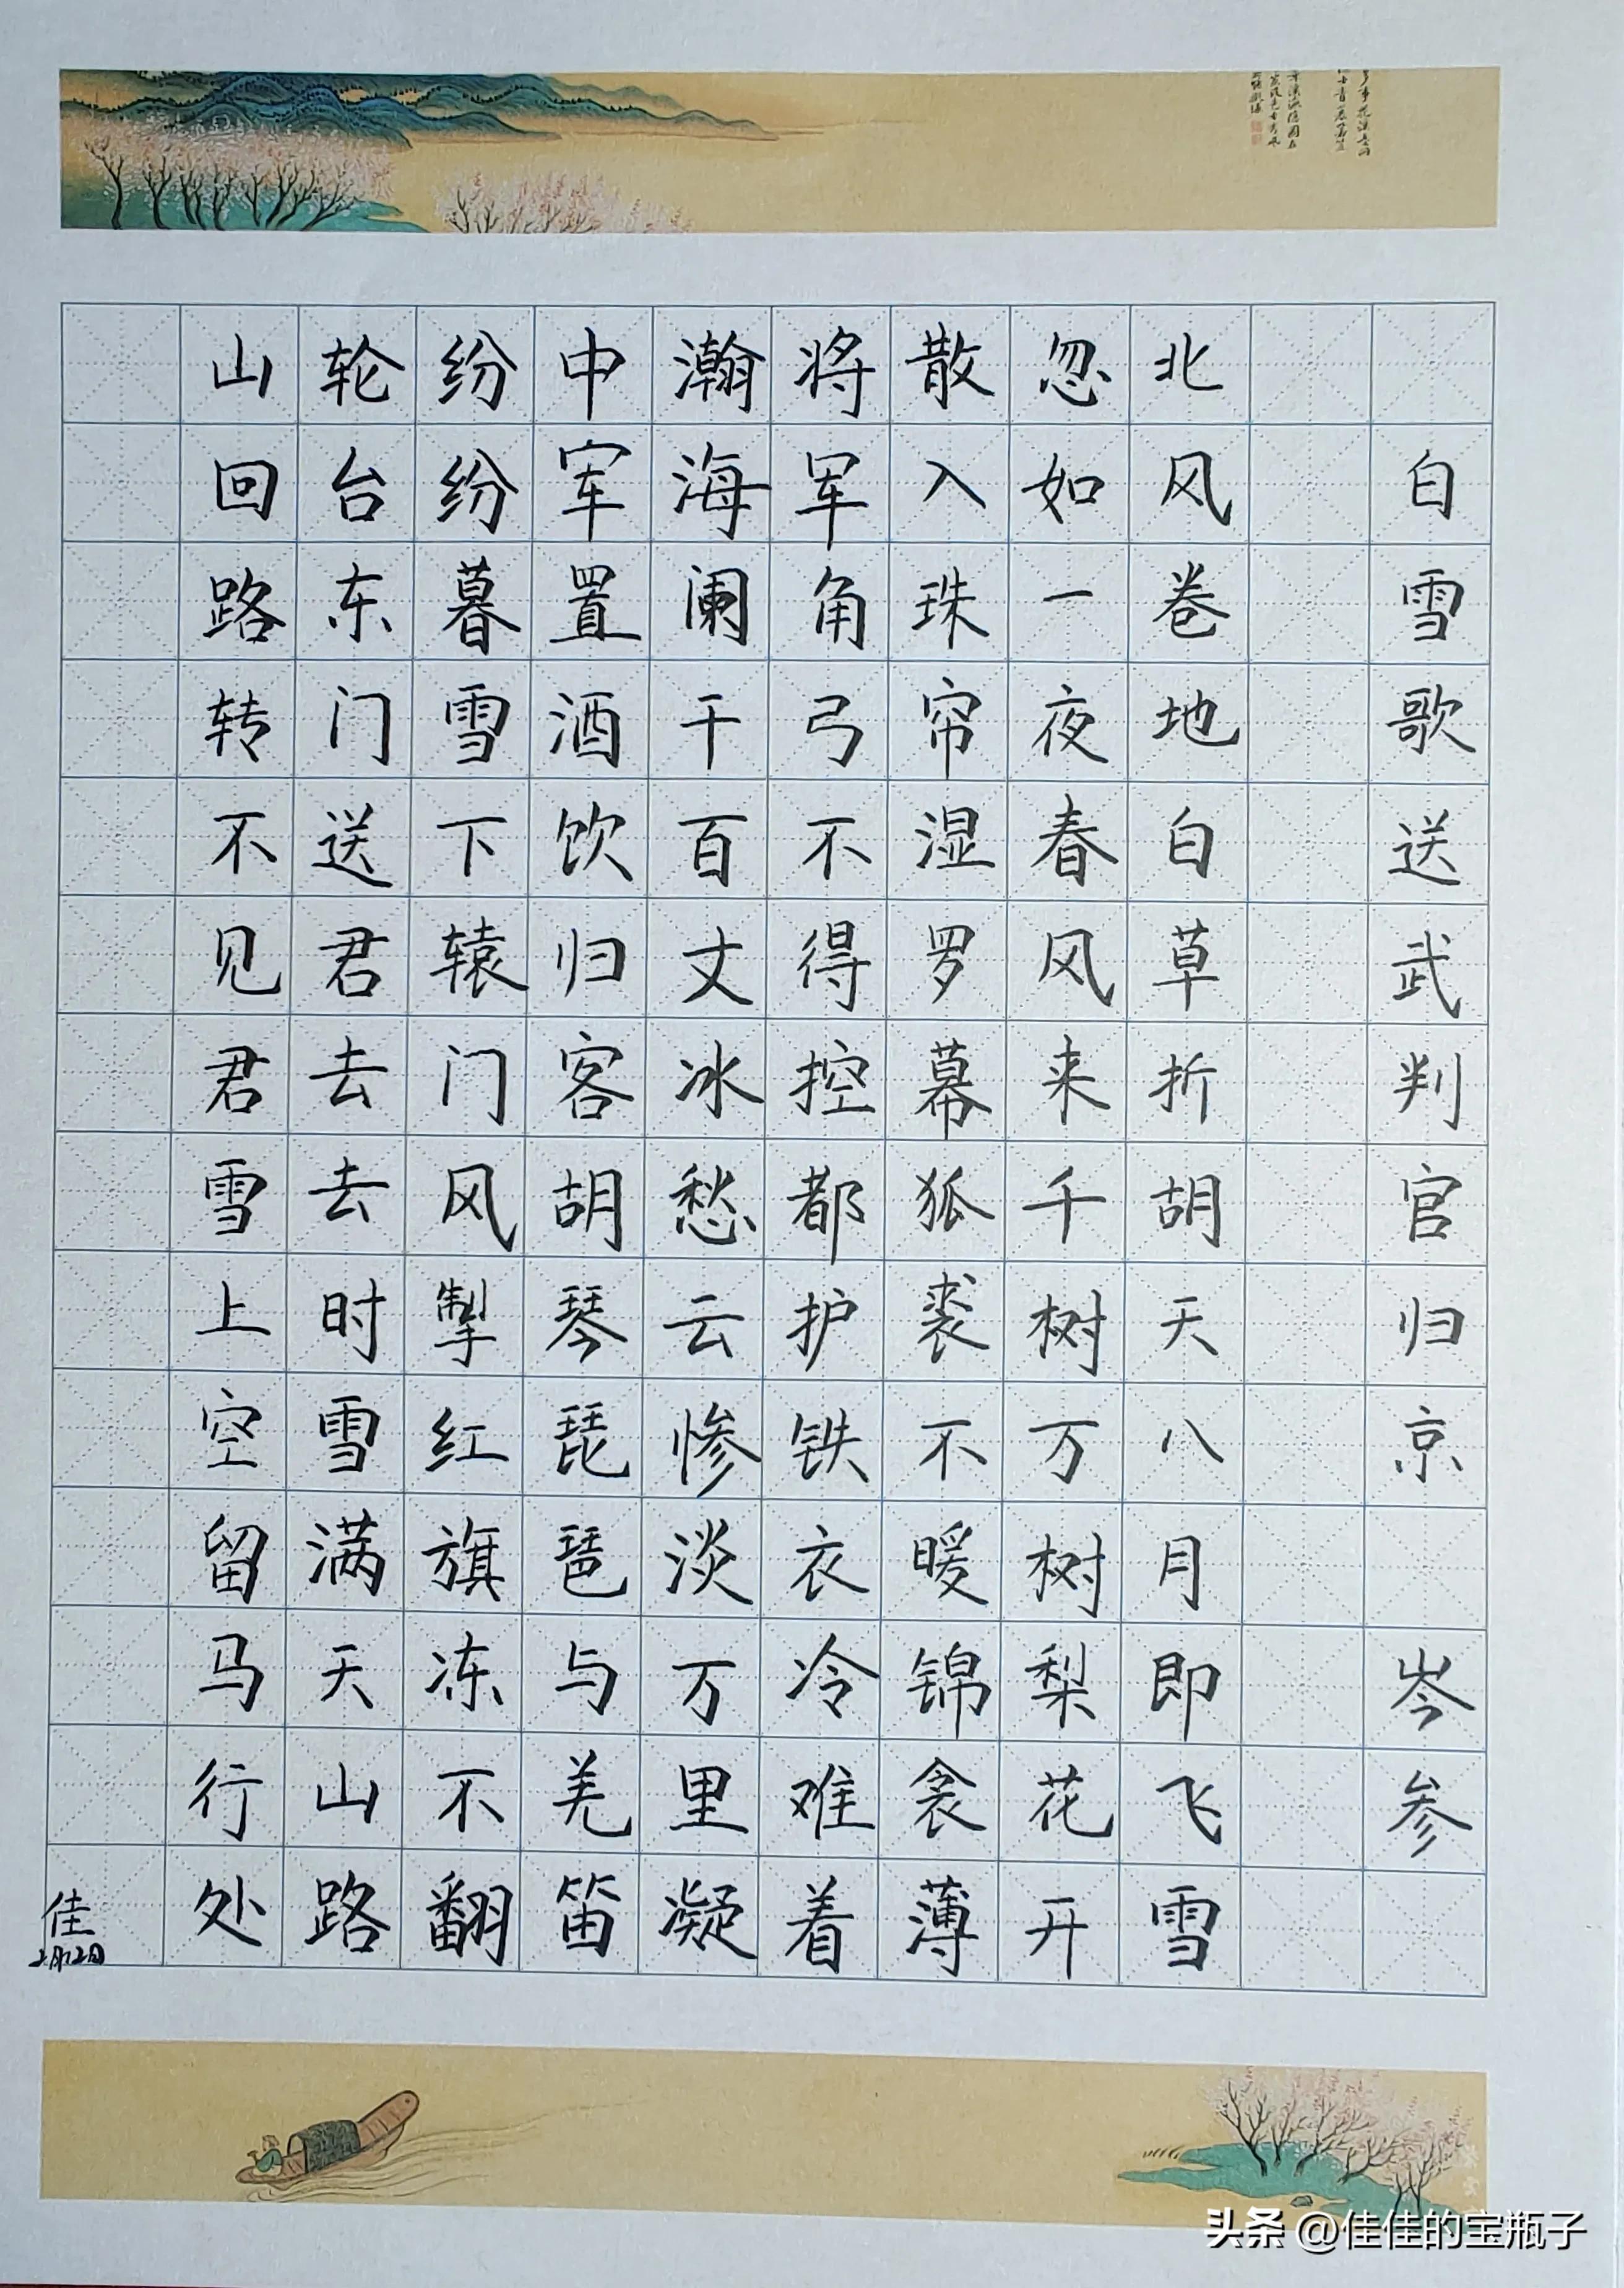 白雪歌送武判官归京 岑参
北风卷地白草折胡天八月即飞雪
忽如一夜春风来千树万树梨花开
散入珠帘湿罗幕狐裘不暖锦衾薄
将军角弓不得控都护铁衣冷难着
瀚海阑干百丈冰愁云惨淡万里凝
中军置酒饮归客胡琴琵琶与羌笛
纷纷暮雪下辕门风掣红旗冻不翻
轮台东门送君去去时雪满天山路
山回路转不见君雪上空留马行处
佳
2月12日
头条 @佳佳的宝瓶子